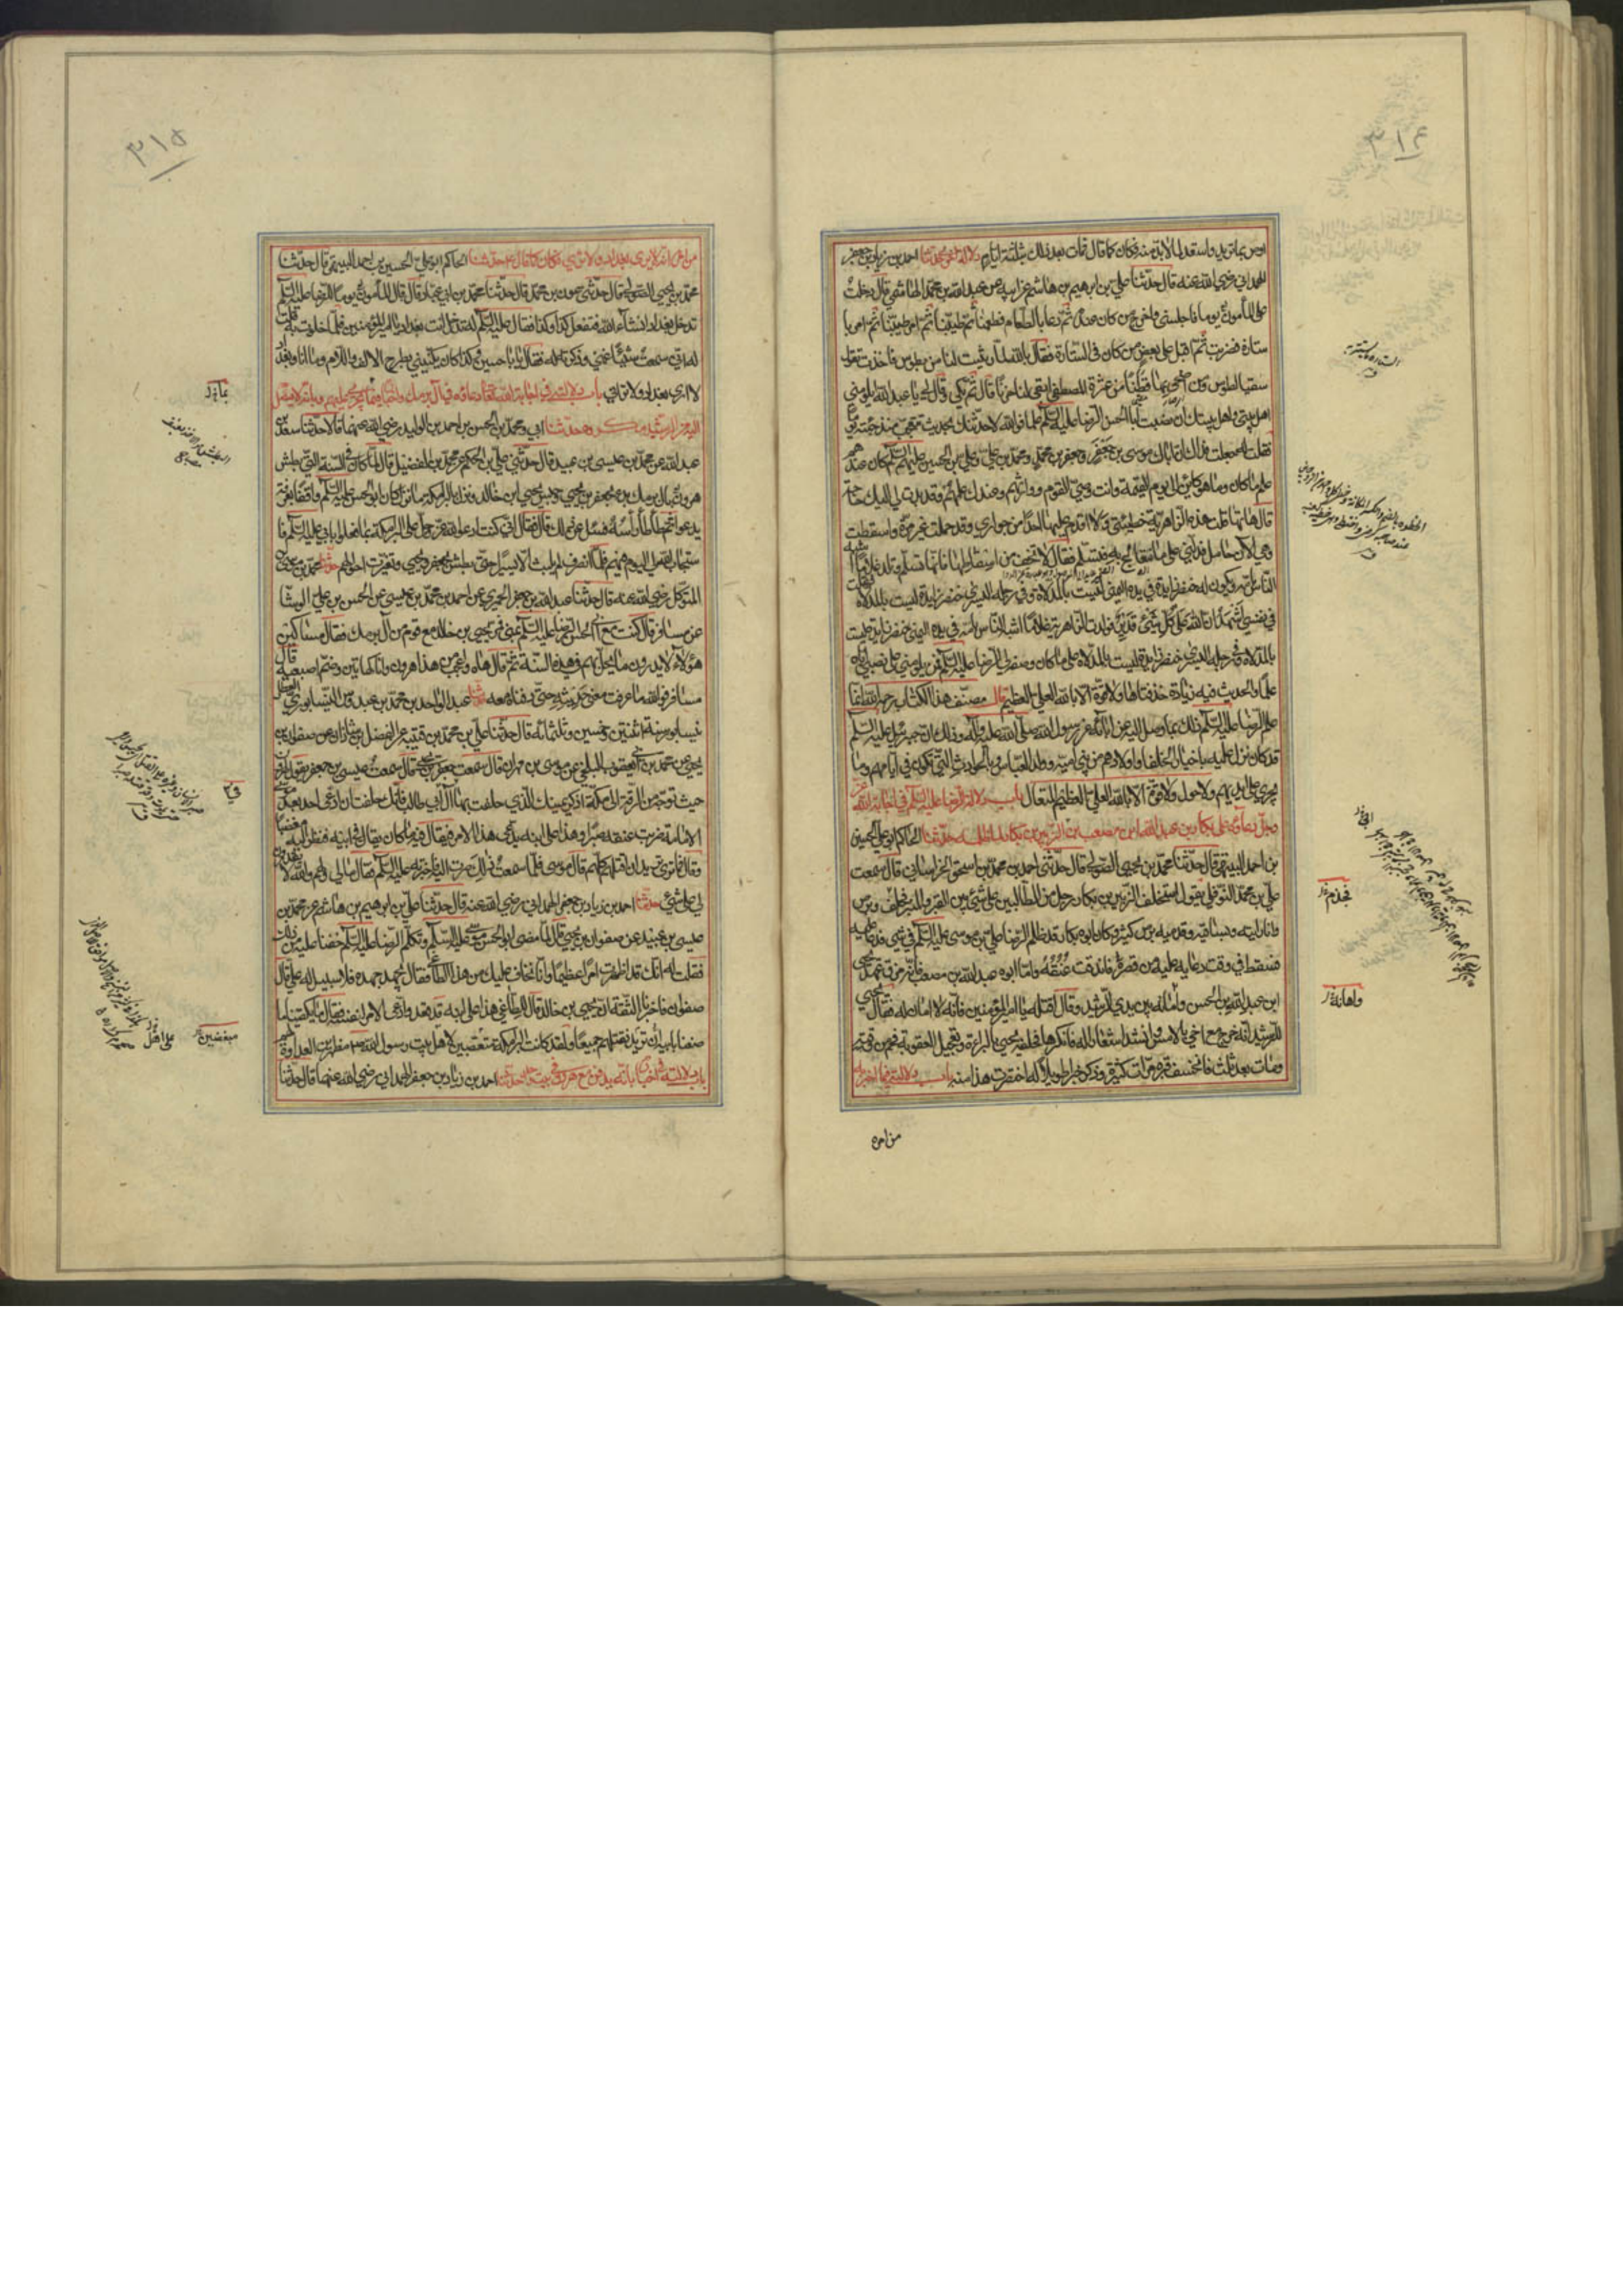 ٣١۴
اوص بما تريد واستعد لما لابد منه فكان كما قال فمات بعد ذلك بثلثة ايام دلالة اخرى حدثنا احمد بن زياد بن جعفر
الهمداني رضي الله عنه قال حدثنا علي بن ابرهيم بن هاشم عن ابيه عن عبد الله بن محمد الهاشمي قال دخلت
على المأمون يوما فاجلسني واخرج من كان عنده ثم دعا بالطعام فطعمنا ثم طيبنا ثم امر
ستارة فضربت ثم اقبل على بعض من كان في الستارة فقال بالله لما رثيت لنا من بطوس فاخذت تقول
سقيا لطوس ومن اضحى بها قطنا من عترة المصطفى ابقى لنا حزنا قال ثم بكى وقال لي يا عبد الله ايلومني
اهل بيتي واهل بيتك ان نصبت ابا الحسن الرضا عليه السلم علما فوالله لاحدثنك بحديث تتعجب منه جئته يوما
فقلت له جعلت فداك ان اباك موسى بن جعفر وجعفر بن محمد ومحمد بن علي وعلي بن الحسين عليهم السلم كان عندهم
علم ما كان وما هو كاين الى يوم القيمة وانت وصي القوم ووارثهم وعندك علمهم وقد بدت لي اليك حاجة
قال هاتها فقلت هذه الزاهرية حظيتي ولا اقدم عليها احدا من جواري وقد حملت غير مرة واسقطت
وهي الآن حامل فدلني على ما تتعالج به فتسلم فقال لا تخف من اسقاطها فانها تسلم وتلد غلاما اشبه
الناس بامه ويكون له خنصر زايدة في يده اليمنى ليست بالمدلاة وفي رجله اليسرى خنصر زايدة ليست بالمدلاة فقلت
في نفسي اشهد ان الله على كل شيء قدير فولدت الزاهرية غلاما اشبه الناس بامه في يده اليمنى خنصر زايدة ليست
بالمدلاة وفي رجله اليسرى خنصر زايدة ليست بالمدلاة على ما كان وصفه لي الرضا عليه السلم فمن يلومني على نصبي اياه
علما والحديث فيه زيادة حذفناها ولا قوة الا بالله العلي العظيم قال مصنف هذا الكتاب رحمه الله انما
علم الرضا عليه السلم ذلك بما وصل اليه عن ابائه عن رسول الله صلى الله عليه وآله وذلك ان جبرئيل عليه السلم
قد كان نزل عليه باخبار الخلفا واولادهم من بني امية وولد العباس وبالحوادث التي تكون في ايامهم وما
يجري على ايديهم ولا حول ولا قوة الا بالله العلي العظيم المتعال باب دلالة الرضا عليه السلم في اجابة الله عز
وجل دعاؤه على بكار بن عبد الله بن مصعب بن الزبير بن بكار لما ظلمه حدثنا الحاكم ابو علي الحسين
بن احمد البيهقي قال حدثنا محمد بن يحيى الصولي قال حدثني احمد بن محمد بن اسحق الخراساني قال سمعت
علي بن محمد النوفلي يقول استحلف الزبير بن بكار رجل من الطالبيين على شيء بين القبر والمنبر فحلف وبرص
وانا رايته وبساقيه وقدميه برص كثير وكان ابوه بكار قد ظلم الرضا علي بن موسى عليه السلم في شيء فدعا عليه
فسقط في وقت دعائه عليه من قصر فاندقت عنقه واما ابوه عبد الله بن مصعب فانه مزق عهد يحيى
ابن عبد الله بن الحسن وامانه بين يدي الرشيد وقال اقتله يا امير المؤمنين فانه لا امان له فقال يحيى
للرشيد انه خرج مع اخي بالامس وانشد اشعارا له فانكرها فحلفه يحيى بالبراءة وتعجيل العقوبة فحم من وقته
ومات بعد ثلث فانخسف قبره مرات كثيرة وذكر خبرا طويلا له اختصرت هذا منه باب دلالته فيما اخبر به
من امره
فخذم
واهانة
٣١۵
من امره انه لا يرى بغداد ولا تراه فكان كما قال حدثنا الحاكم ابو علي الحسين بن احمد البيهقي قال حدثنا
محمد بن يحيى الصولي قال حدثني عون بن محمد قال حدثنا محمد بن ابي عباد قال قال المأمون يوما للرضا عليه السلم
تدخل بغداد انشاء الله فتفعل كذا وكذا فقال عليه السلم له تدخل انت بغداد يا امير المؤمنين فلما خلوت به قلت
له اني سمعت شيئا غمني وذكرته له فقال يا با حسين وكذا كان يكنيني بطرح الالف واللام وما انا وبغداد
لا ارى بغداد ولا تراني باب دلالته في اجابة الله تعالى دعاءه في آل برمك واخباره بما يجري عليهم وبانه لا يصل
اليه من الرشيد مكروه حدثنا ابي ومحمد بن الحسن بن احمد بن الوليد رضي الله عنهما قالا حدثنا سعد بن
عبد الله عن محمد بن عيسى بن عبيد قال حدثني علي بن الحكم عن محمد بن الفضيل قال لما كان في السنة التي بطش
هرون بآل برمك بدء بجعفر بن يحيى وحبس يحيى ابن خالد ونزل بالبرامكة ما نزل كان ابو الحسن عليه السلم واقفا بعرفة
يدعوا ثم طأطأ رأسه فسئل عن ذلك فقال اني كنت ادعو الله عز وجل على البرامكة بما فعلوا بابي عليه السلم فا
ستجاب الله لي اليوم فيهم فلما انصرف لم يلبث الا يسيرا حتى بطش بجعفر ويحيى وتغيرت احوالهم حدثنا محمد بن موسى بن
المتوكل رضي الله عنه قال حدثنا عبد الله بن جعفر الحميري عن احمد بن محمد بن عيسى عن الحسن بن علي الوشا
عن مسافر قال كنت مع ابي الحسن الرضا عليه السلم بمنى فمر يحيى بن خالد مع قوم من آل برمك فقال مساكين
هؤلاء لا يدرون ما يحل بهم في هذه السنة ثم قال هاه واعجب من هذا هرون وانا كهاتين وضم اصبعيه قال
مسافر فوالله ما عرفت معنى حديثه حتى دفناه معه حدثنا عبد الواحد بن محمد بن عبدوس النيسابوري العطار
نيسابور سنة اثنتين وخمسين وثلثمائة قال حدثنا علي بن محمد بن قتيبة عن الفضل بن شاذان عن صفوان بن
يحيى عن محمد بن ابي يعقوب البلخي عن موسى بن مهران قال سمعت جعفر بن يحيى قال سمعت عيسى بن جعفر يقول لهرون
حيث توجه من الرقة الى مكة اذكر يمينك الذي حلفت بها في آل ابي طالب فانك حلفت ان ادعى احد بعد موسى
الامامة ضربت عنقه صبرا وهذا علي ابنه يدعي هذا الامر ويقال فيه ما كان يقال في ابيه فنظر اليه مغضبا
وقال فما ترى تريد ان اقتلهم كلهم قال موسى فلما سمعت ذلك صرت اليه فاخبرته عليه السلم فقال ما لي ولهم والله لا يقدرون
لي على شيء حدثنا احمد بن زياد بن جعفر الهمداني رضي الله عنه قال حدثنا علي بن ابرهيم بن هاشم عن محمد بن
عيسى بن عبيد عن صفوان بن يحيى قال لما مضى ابو الحسن موسى عليه السلم وتكلم الرضا عليه السلم خفنا عليه من ذلك
فقلت له انك قد اظهرت امرا عظيما وانا نخاف عليك من هذا الطاغي فقال ليجهد جهده فلا سبيل له علي قال
صفوان فاخبرنا الثقة ان يحيى بن خالد قال للطاغي هذا علي ابنه قد قعد وادعى الامر لنفسه فقال ما يكفينا ما
صنعنا بابيه تريد نقتلهم جميعا ولقد كانت البرامكة متعصبين لاهل بيت رسول الله ص مظهرين العداوة لهم
باب دلالته في اخباره بانه يدفن مع هرون في بيت واحد حدثنا احمد بن زياد بن جعفر الهمداني رضي الله عنهما قال حدثنا
مبغضين